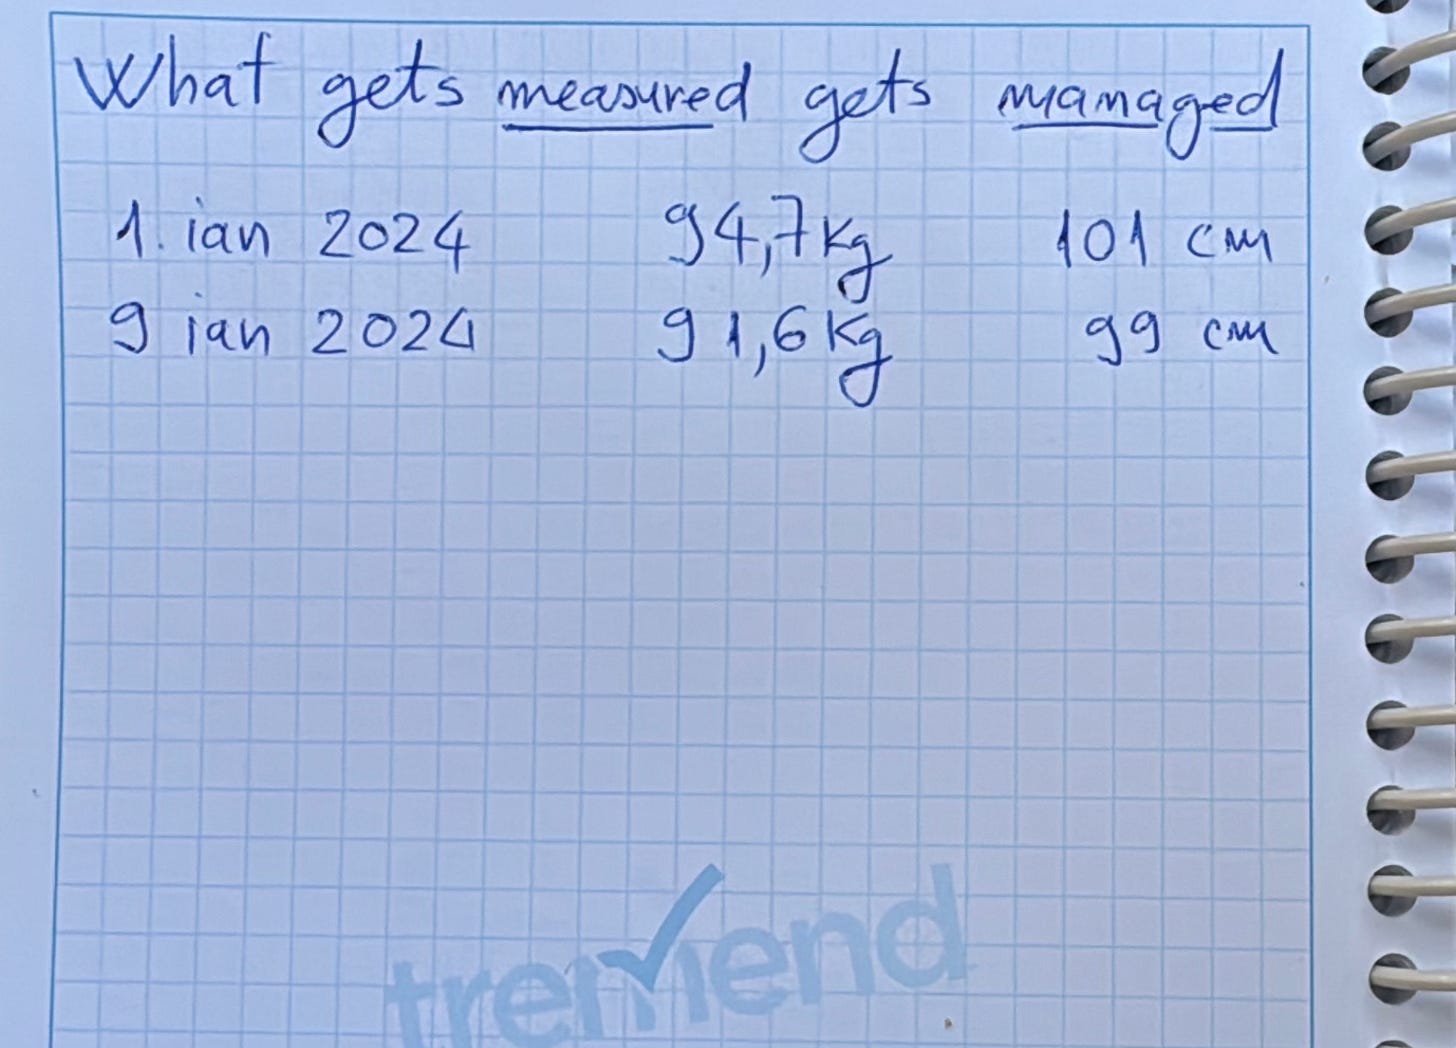 What gets measured gets managed
1. ian 2024 94,7 kg 101 cm
9 ian 2024 91,6 kg 99 cm
tremend